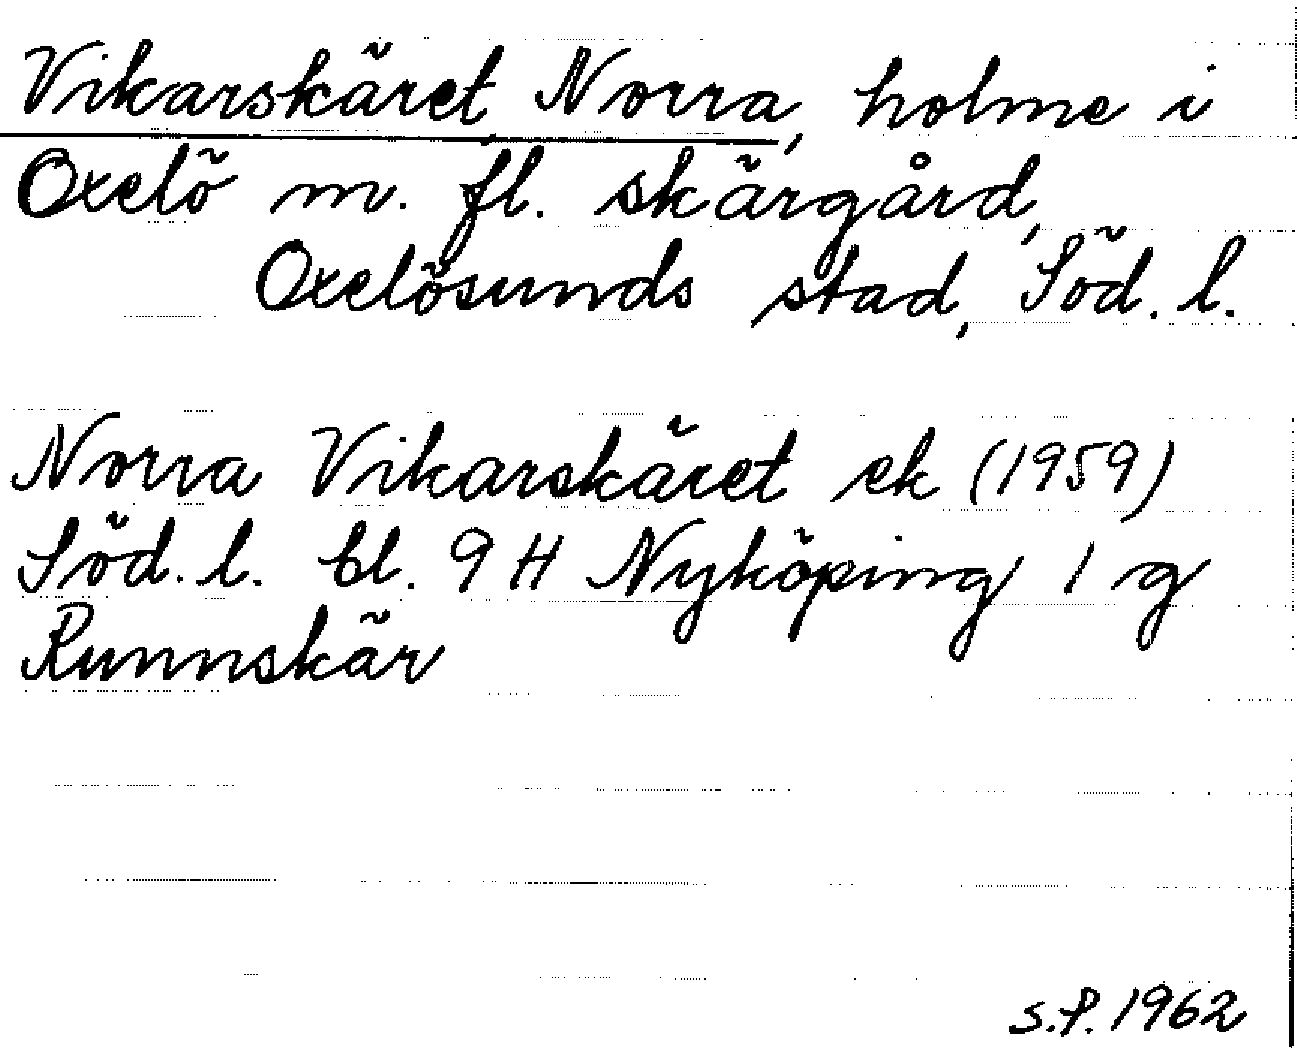 Vikarskäret Norra, holme i
Oxelö m. fl. skärgård,
Oxelösunds stad, Söd. l.
Norra Vikarskäret ek (1959)
Söd. l. bl. 9 H Nyköping 1 g
Runnskär
S.P. 1962